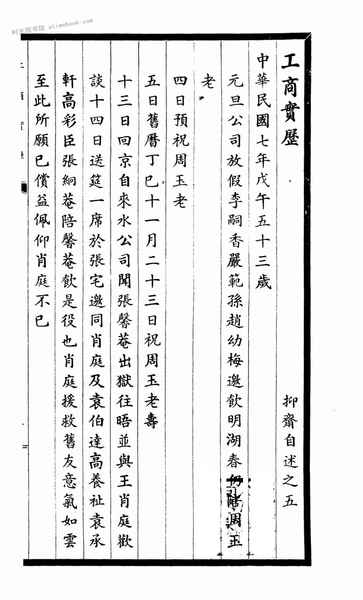 工商實歷
抑齋自述之五
中華民國七年戊午五十三歲
元旦公司放假李嗣香嚴範孫趙幼梅邀飲明湖春 陪周玉
老
四日預祝周玉老
五日舊曆丁巳十一月二十三日祝周玉老壽
十三日回京自來水公司聞張馨菴出獄往晤並與王肖庭歡
談十四日送筵一席於張宅邀同肖庭及袁伯達高養祉袁承
軒高彩臣張絅菴陪馨菴飲是役也肖庭援救舊友意氣如雲
至此所願已償益佩仰肖庭不已